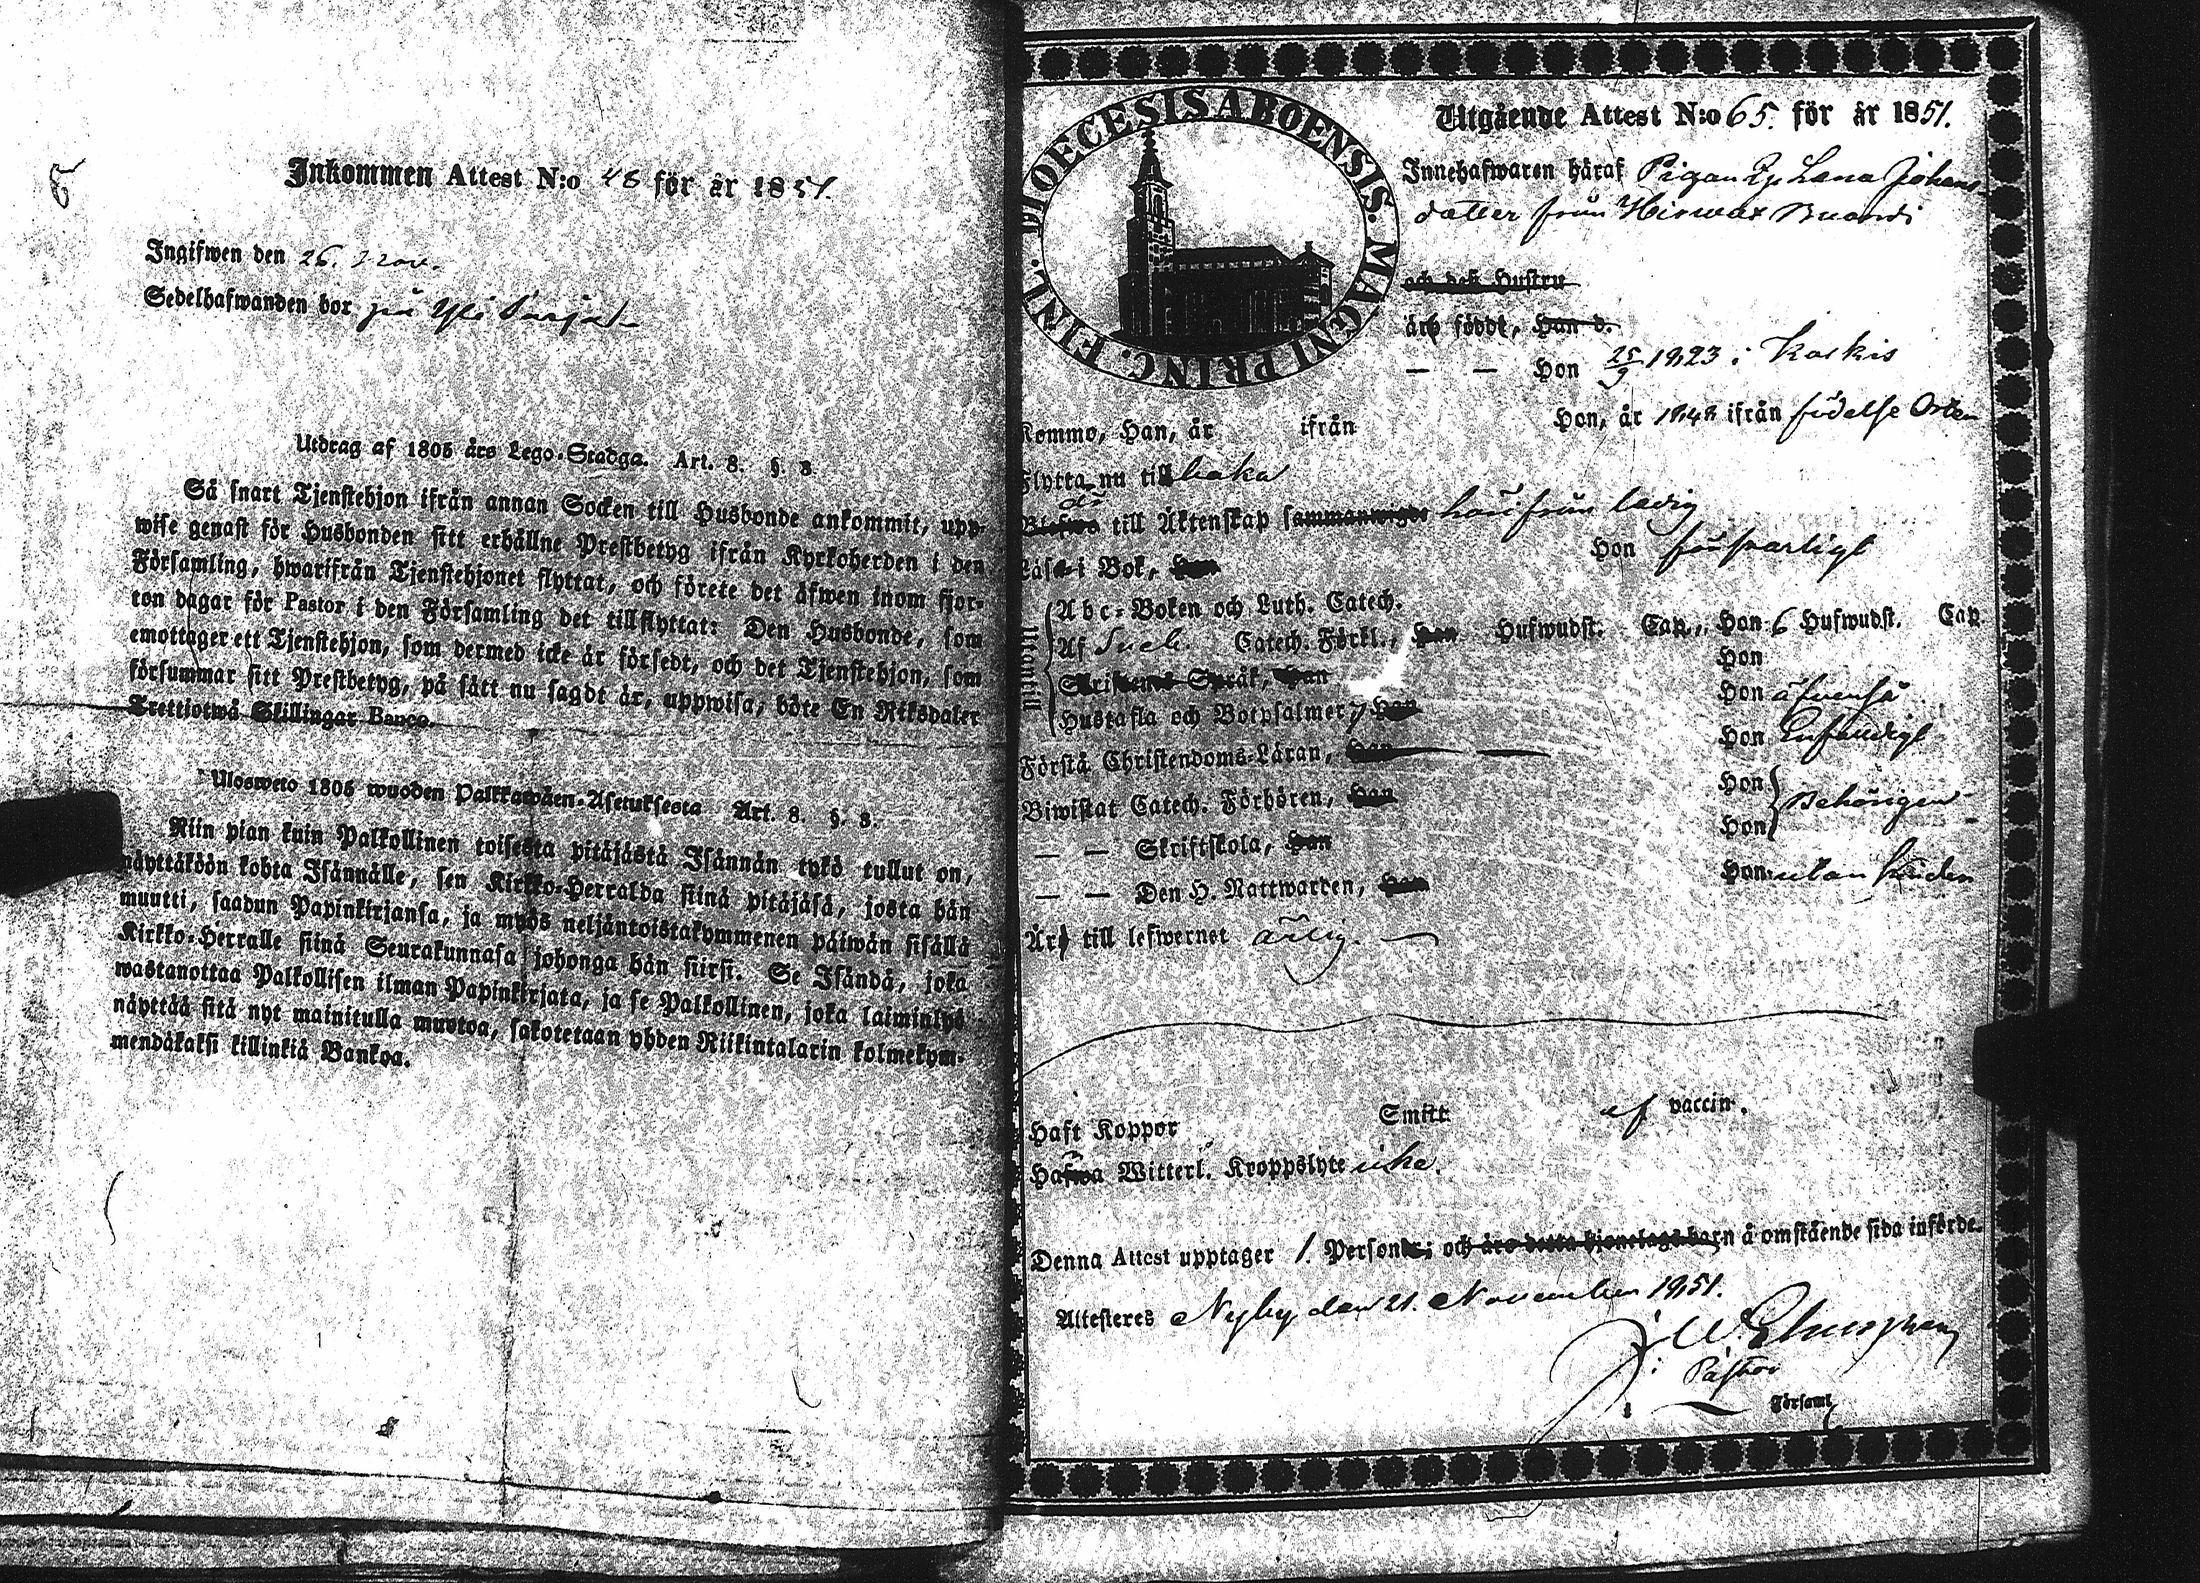 Inkommen Attest N:o 48 för år 1851.
Ingifwen den 26. Nov.
Sedelhafwanden bor på Yli
Utdrag af 1805 års Lego-Stadga. Art. 8. §. 8.
Så snart Tjenstehjon ifrån annan Socken till Husbonde ankommit, upp-
wise genast för Husbonden sitt erhållne Prestbetyg ifrån Kyrkoherden i den
Församling, hwarifrån Tjenstehjonet flyttat, och förete det äfwen inom fjor-
ton dagar för Pastor i den Församling det tillflyttat: Den Husbonde, som
emottager ett Tjenstehjon, som dermed icke är försedt, och det Tjenstehjon, som
försummar sitt Prestbetyg, på sätt nu sagdt är, uppwisa, böte En Riksdaler
Trettiotwå Skillingar Banco.
Ulosweto 1805 wuoden Palkkawäen-Asetuksesta Art. 8. §. 8.
Niin pian kuin Palkollinen toisesta pitäjästä Isännän tykö tullut on,
näyttäköön kohta Isännälle, sen Kirkko-Herralda siinä pitäjäsä, josta hän
muutti, saadun Papinkirjansa, ja myös neljäntoistakymmenen päiwän sisällä
Kirkko-Herralle siinä Seurakunnasa johonga hän siirsi. Se Isändä, joka
wastanottaa Palkollisen ilman Papinkirjata, ja se Palkollinen, joka laiminlyö
näyttää sitä nyt mainitulla muotoa, sakotetaan yhden Riikintalarin kolmekym-
mendäkaksi killinkiä Bankoa.
DIOECESIS ABOENSIS. MAGNI PRINC. FINL.
Utgående Attest N:o 65. för år 1851.
Innehafwaren häraf Pigan Lena Johans
dotter från
och dess Hustru
äro född, Han d.
— — Hon 25/9 1823 i Koskis
Kommo, Han, år ifrån Hon, år 1848 ifrån födelse Orten
Flytta nu tillbaka
till Äktenskap härifrån ledig
Läsa i Bok, Han Hon försvarligt
Utantill
Abc-Boken och Luth. Catech.
Af Sveb. Catech. Förkl., Han Hufwudst. Cap., Hon 6 Hufwudst. Cap.
Skriftenes Språk, Han Hon
Hustafla och Botpsalmer, Han Hon äfvenså
Förstå Christendoms-Läran, Han Hon Enfaldigt
Biwistat Catech. Förhören, Han Hon Behörigen
— — Skriftskola, Han Hon
— — Den H. Nattwarden, Han Hon utan hinder
Är till lefwernet ärlig.
Haft Koppor Smitt af vaccin.
Hafwa Witterl. Kroppslyte icke.
Denna Attest upptager 1. Personer; och äro detta hjonelags barn å omstående sida införde.
Attesteres Nyby den 21. November 1851.
Pastor
Församl.